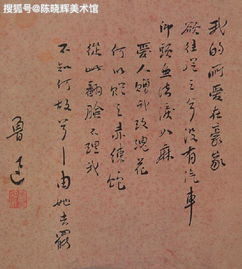 搜狐号@陈晓辉美术馆
我的所爱在豪家
欲往从之兮没有汽车
仰头无法泪如麻
爱人赠我玫瑰花
何以赠之赤练蛇
从此翻脸不理我
不知何故兮—由她去罢
鲁迅